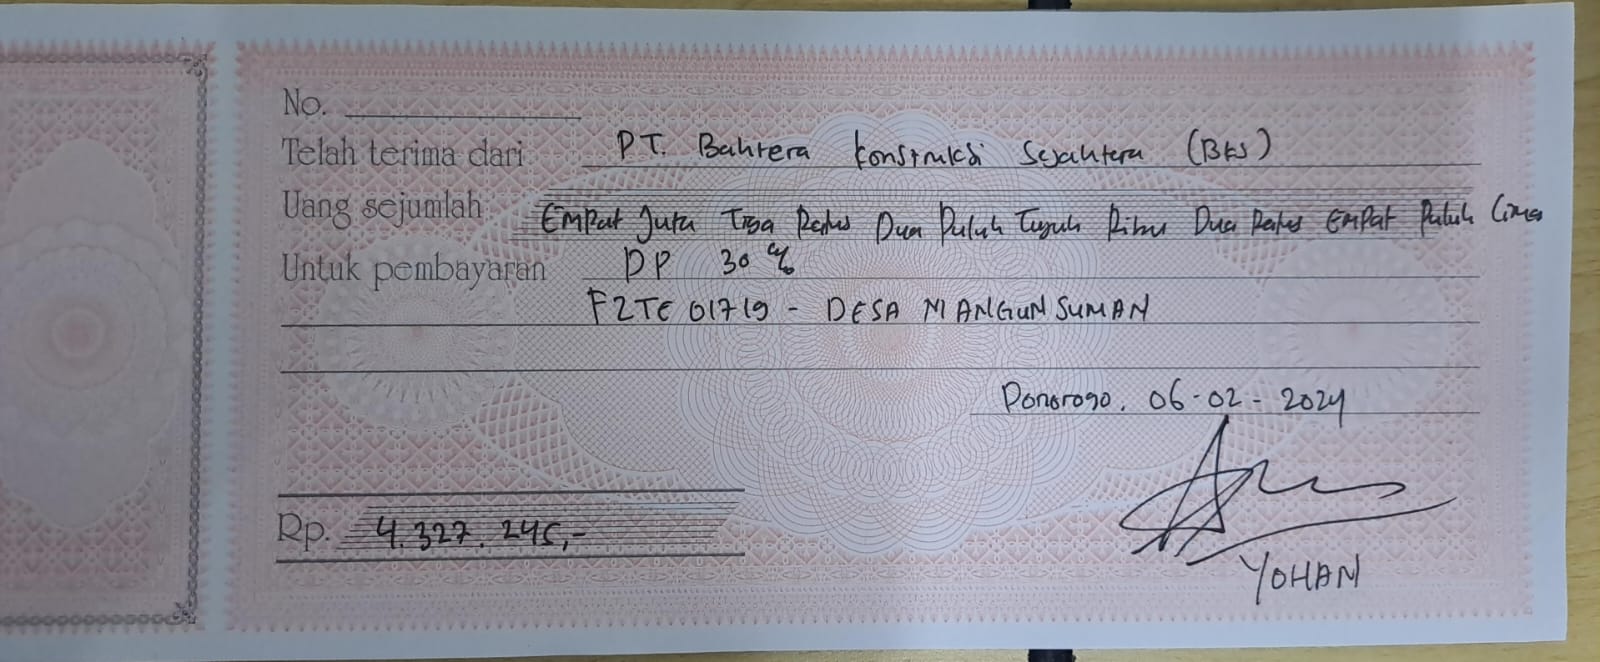 No.
Telah terima dari PT. Bahtera Konstruksi Sejahtera (BKS)
Uang sejumlah Empat Juta Tiga Ratus Dua Puluh Tujuh Ribu Dua Ratus Empat Puluh Lima
Untuk pembayaran DP 30%
F2TE01719 - DESA MANGUNSUMAN
Ponorogo, 06-02-2024
Rp. 4.327.245,-
YOHAN